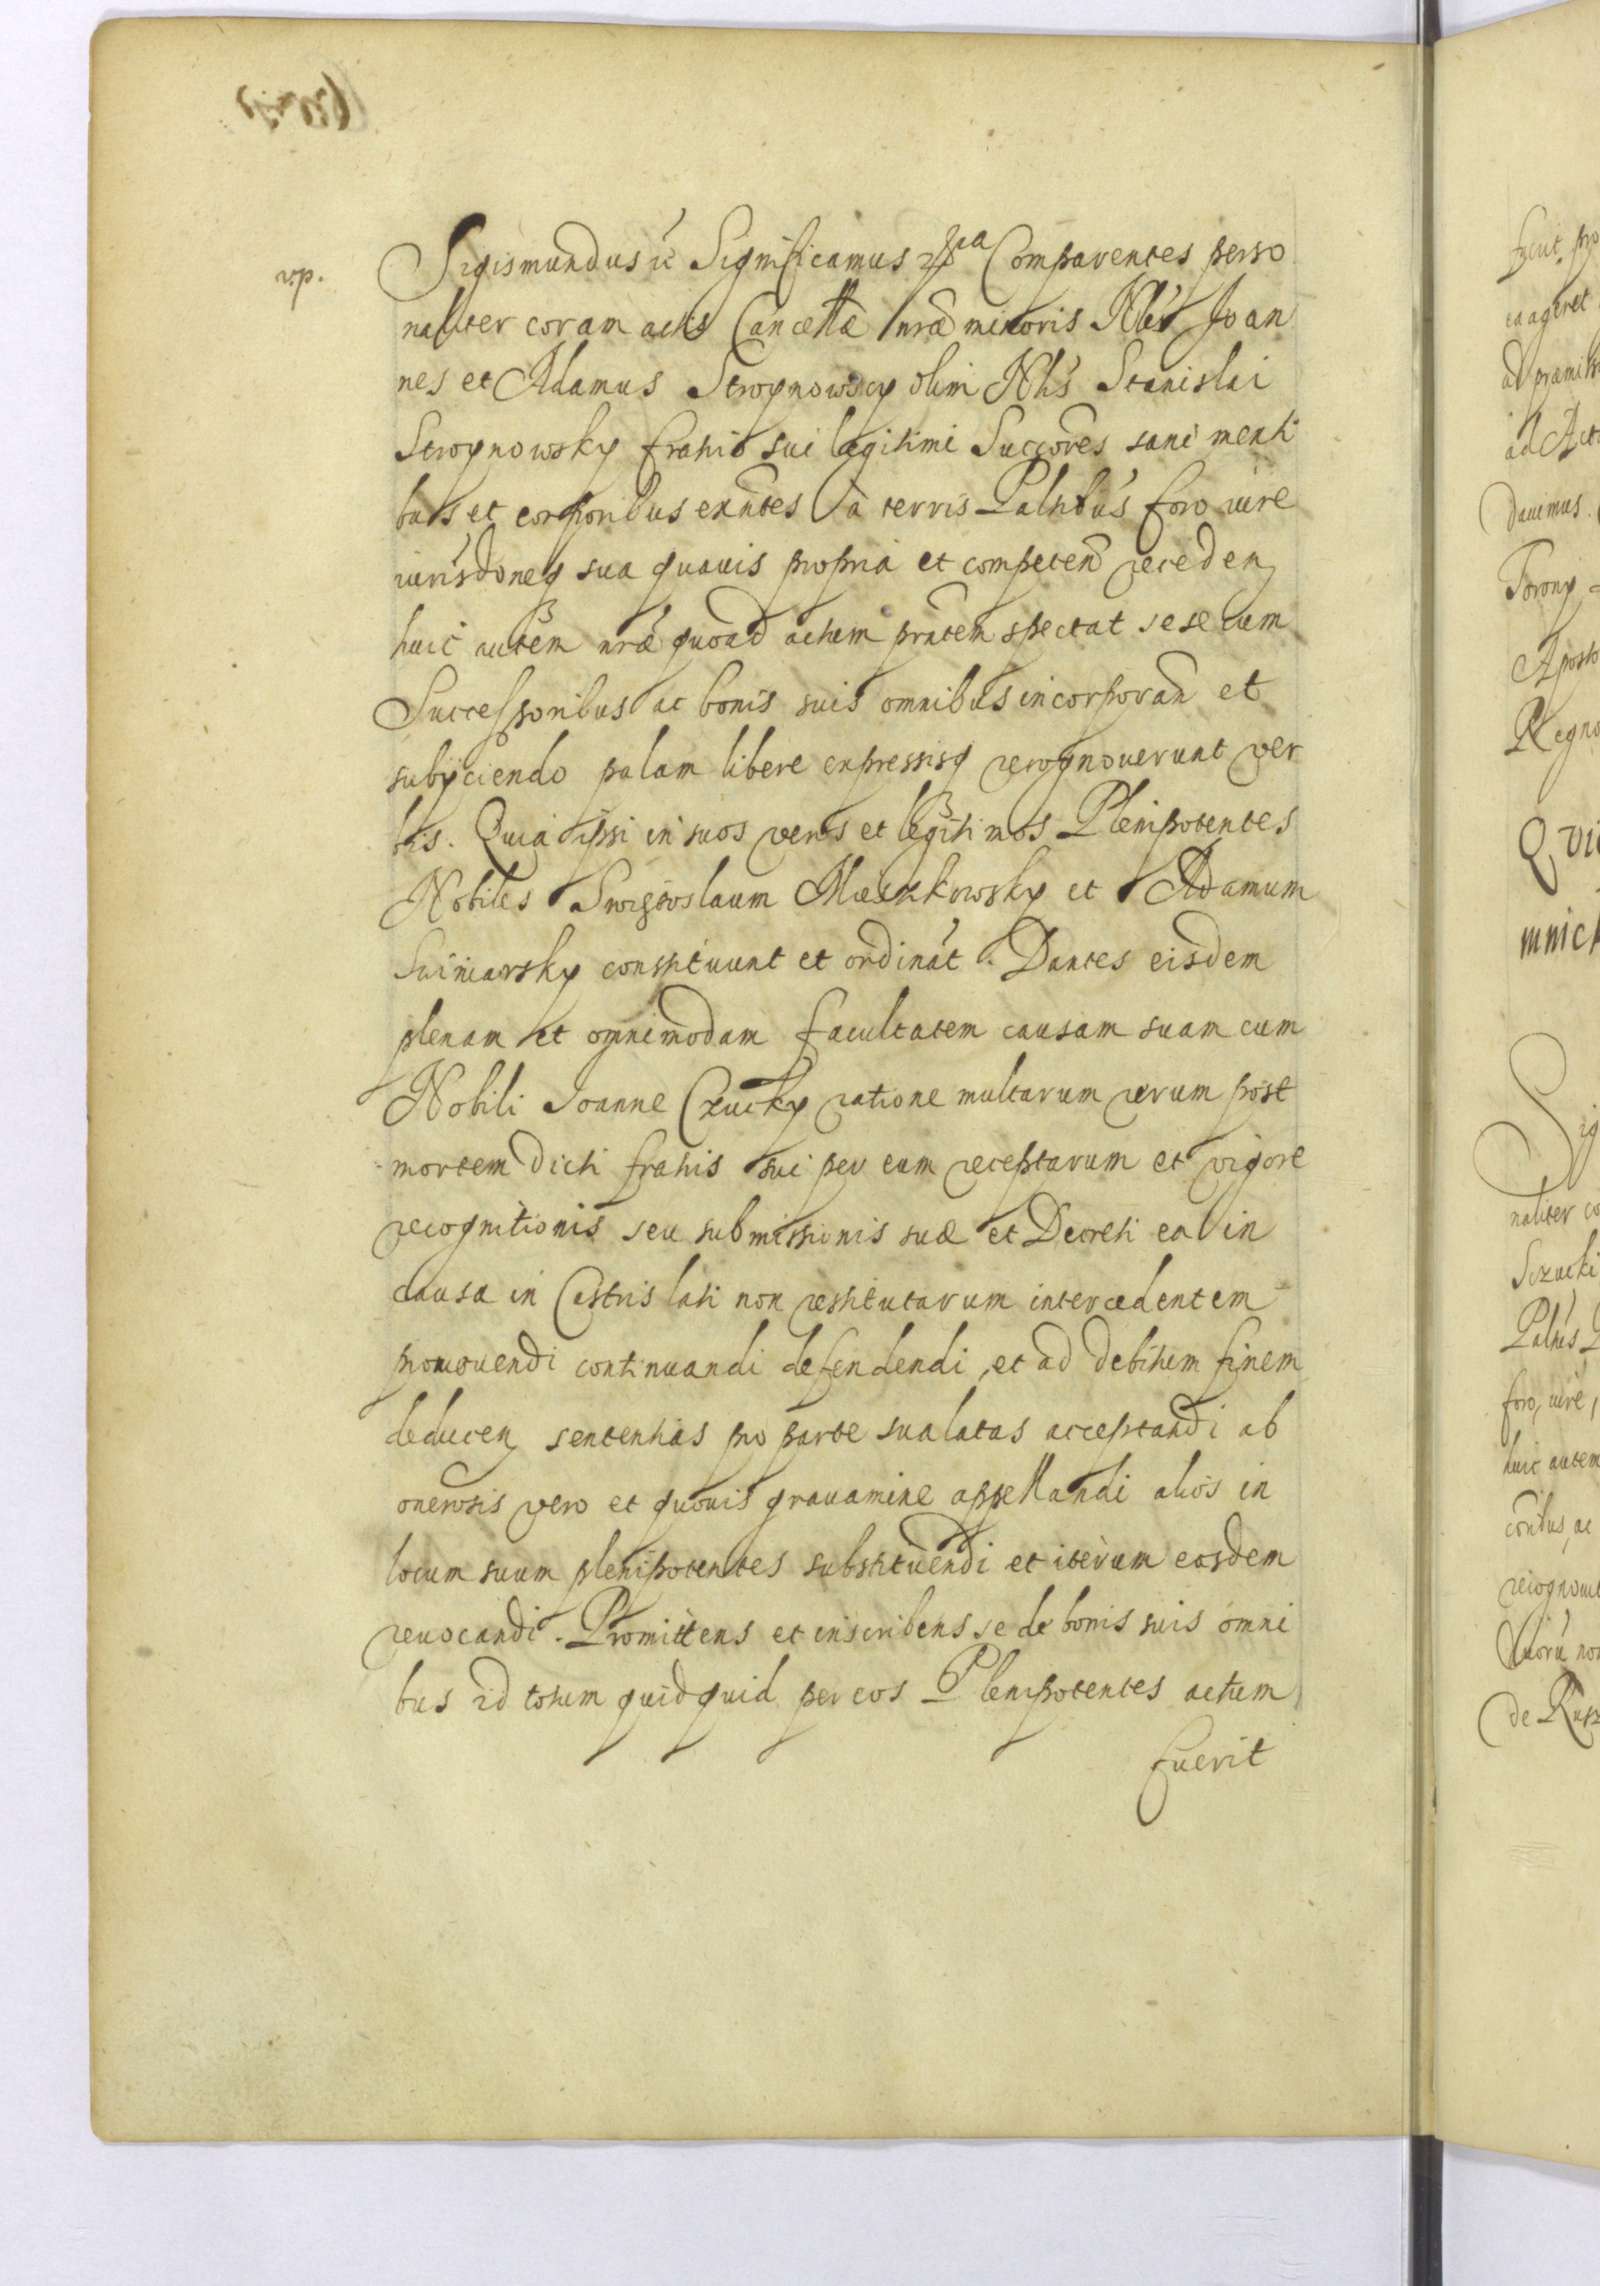 vp.
Sigismundus etc Significamus Comparentes perso
naliter coram actis Cancellae nrae minoris Nbles Joan
nes et Adamus Stroynowscy olim Nblis Stanislai
Stroynowsky fratris sui legitimi Succores sani menti
bus et corporibus exntes à terris Palntbus foro iure
iurisdoneq sua quavis propria et competen receden
huic autem nrae quoad actum prntem spectat sese cum
Successoribus ac bonis suis omnibus incorporan et
subyciendo palam libere expressisq recognoverunt ver
bis. Quia ipsi in suos veros et legitimos Plenipotentes
Nobiles Swiętoslaum Mieszkowsky et Adamum
Suiniarsky constituunt et ordinat. Dantes eisdem
plenam et omnimodam facultatem causam suam cum
Nobili Joanne Czucky ratione multarum rerum post
mortem dicti fratris sui per eum receptarum et vigore
recognitionis seu submissionis suae et Decreti ea in
causa in Castris lati non restitutarum intercedentem
promovendi continuandi defendendi, et ad debitum finem
deducen sententias pro parte sua latas acceptandi ab
onerosis vero et quovis gravamine appellandi alios in
locum suum plenipotentes substituendi et iterum eosdem
revocandi. Promittens et inscribens se de bonis suis omni
bus id totum quidquid per eos Plenipotentes actum
fuerit
ea ageret
ad praemissa
ad Acta
Aposto
Regno
Qvi
mnich
Sig
naliter co
Sczucki
foro, iure,
huic autem
de Rusz